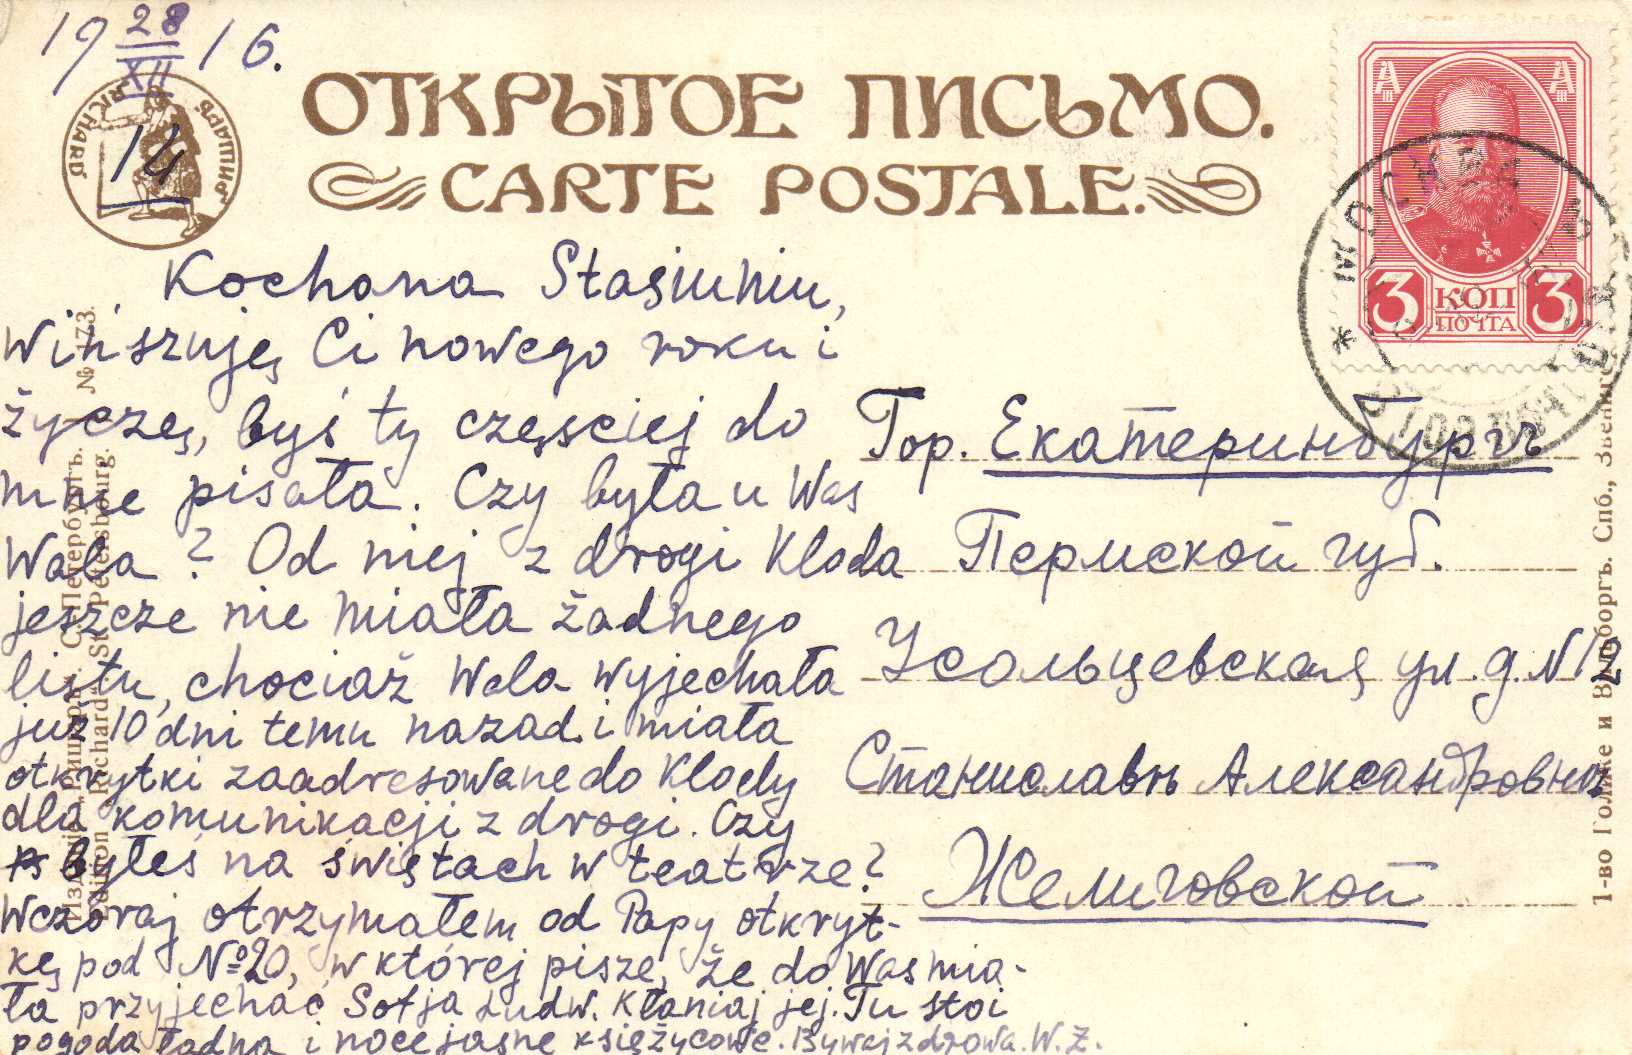 19 28/XII 16.
14
РИШАРЪ
RICHARD
ОТКРЫТОЕ ПИСЬМО.
CARTE POSTALE.
3 КОП 3
ПОЧТА
МОСКВА
Kochana Stasiuniu,
Winszuję Ci nowego roku i
życzę, byś ty częsciej do
mnie pisała. Czy była u Was
Wala? Od niej z drogi Kloda
jeszcze nie miała żadnego
listu, chociaż Wala wyjechała
już 10 dni temu nazad i miała
otkrytki zaadresowane do Klody
dla komunikacji z drogi. Czy
byłeś na świętach w teatrze?
Wczoraj otrzymałem od Papy otkryt-
kę pod №20, w której pisze, że do Was mia-
ła przyjechać Sofja Ludw. Kłaniaj jej. Tu stoi
pogoda ładna i noce jasne księżycowe. Bywaj zdrowa. W. Z.
Гор. Екатеринбургъ
Пермской губ.
Усольцевская ул. д. N 12
Станиславѣ Александровнѣ
Желиговской
С.-Петербургъ. № 173.
Edition „Richard“ St. Petersbourg.
Т-во Голике и Вильборгъ. Спб., Звениг